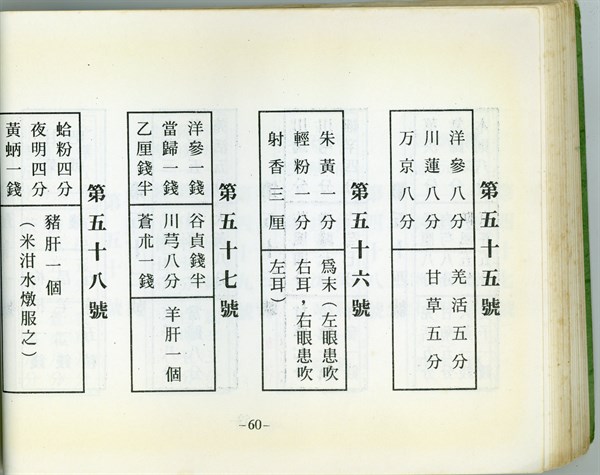 第五十五號
洋參八分
川蓮八分
万京八分
羌活五分
甘草五分
第五十六號
朱黃一分
輕粉一分
射香三厘
為末（左眼患吹
右耳，右眼患吹
左耳）
第五十七號
洋參一錢
當歸一錢
乙厘錢半
谷貞錢半
川芎八分
蒼朮一錢
羊肝一個
第五十八號
蛤粉四分
夜明四分
黃蚋一錢
豬肝一個
（米泔水燉服之）
–60–